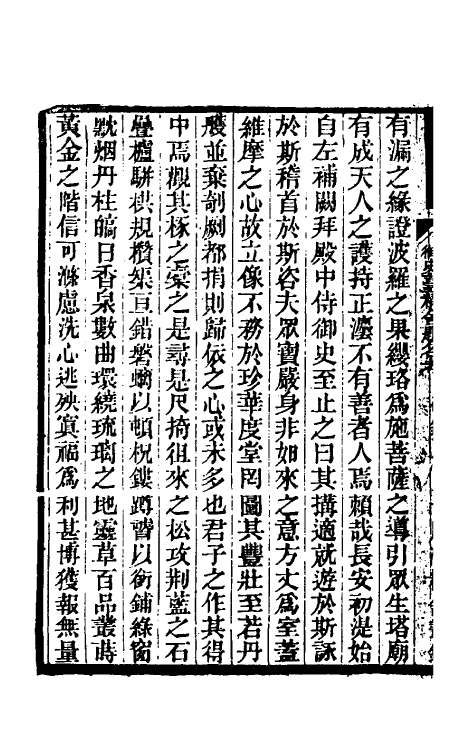 有漏之緣證波羅之果纓珞爲施菩薩之導引眾生塔廟
有成天人之護持正瀍不有善者人焉賴哉長安初湜始
自左補闕拜殿中侍御史至止之日其搆適就遊於斯詠
於斯稽首於斯咨夫眾寶嚴身非如來之意方丈爲室蓋
維摩之心故立像不務於珍華度堂罔圖其豐壯至若丹
雘並棄剞劂都捐則歸依之心或未多也君子之作其得
中焉觀其椓之橐之是尋是尺掎徂來之松攻荆藍之石
疊櫨駢栱規欑榘亘錯磐螭以頓柷鏤蹲 以銜鋪綠窗
黕烟丹柱皜日香泉數曲環繞琉璃之地靈草百品叢蒔
黃金之階信可滌慮洗心逃殃寘福爲利甚博獲報無量